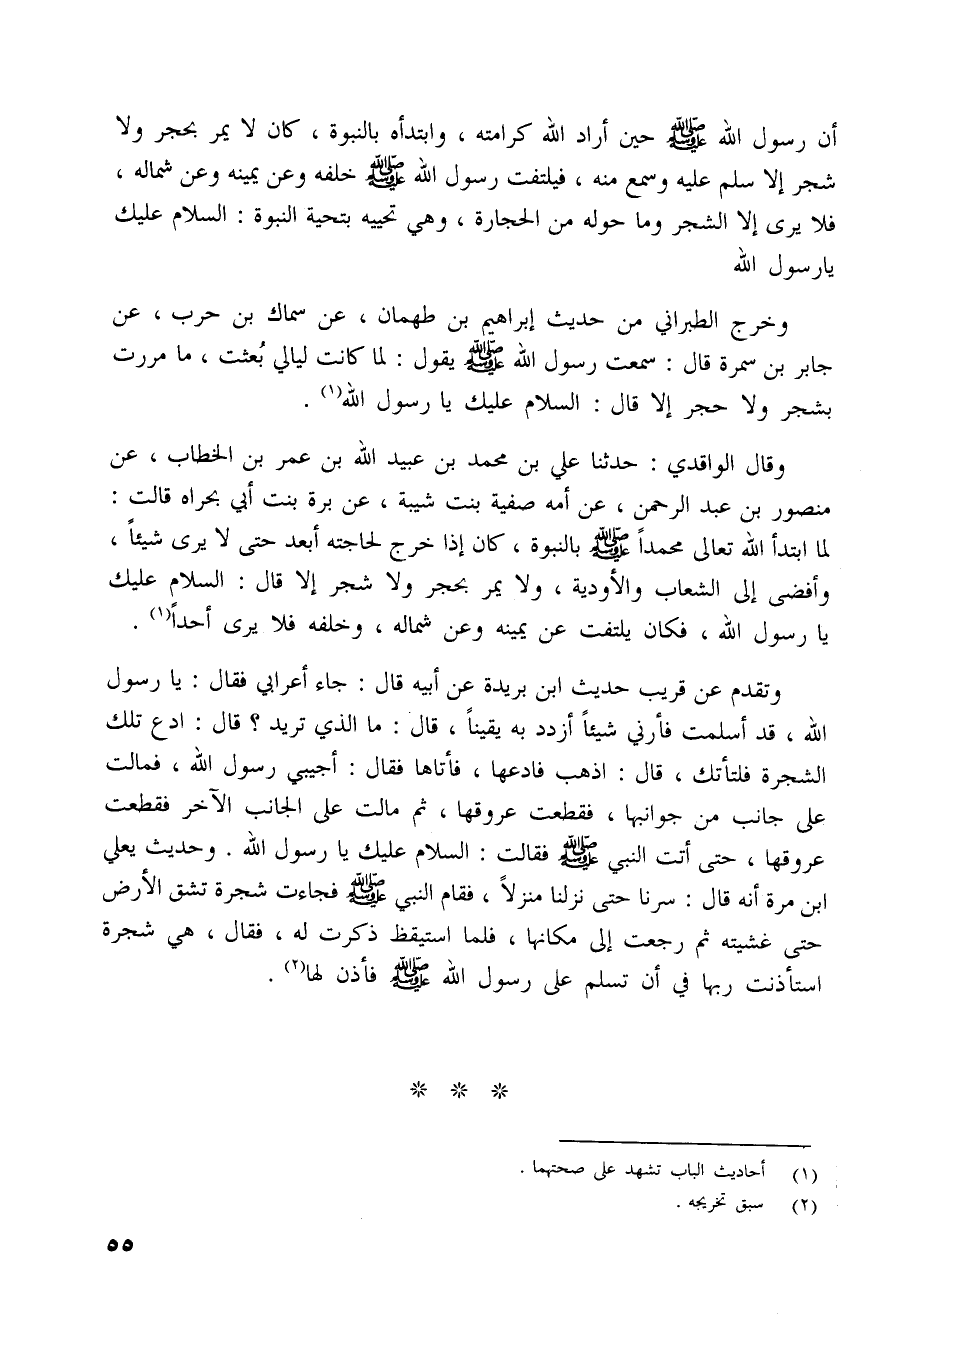 أن رسول الله ﷺ حين أراد الله كرامته ، وابتدأه بالنبوة ، كان لا يمر بحجر ولا
شجر إلا سلم عليه وسمع منه ، فيلتفت رسول الله ﷺ خلفه وعن يمينه وعن شماله ،
فلا يرى إلا الشجر وما حوله من الحجارة ، وهي تحييه بتحية النبوة : السلام عليك
يارسول الله
وخرج الطبراني من حديث إبراهيم بن طهمان ، عن سماك بن حرب ، عن
جابر بن سمرة قال : سمعت رسول الله ﷺ يقول : لما كانت ليالي بُعثت ، ما مررت
بشجر ولا حجر إلا قال : السلام عليك يا رسول الله(١) .
وقال الواقدي : حدثنا علي بن محمد بن عبيد الله بن عمر بن الخطاب ، عن
منصور بن عبد الرحمن ، عن أمه صفية بنت شيبة ، عن برة بنت أبي بحراه قالت :
لما ابتدأ الله تعالى محمداً ﷺ بالنبوة ، كان إذا خرج لحاجته أبعد حتى لا يرى شيئاً ،
وأفضى إلى الشعاب والأودية ، ولا يمر بحجر ولا شجر إلا قال : السلام عليك
يا رسول الله ، فكان يلتفت عن يمينه وعن شماله ، وخلفه فلا يرى أحداً(١) .
وتقدم عن قريب حديث ابن بريدة عن أبيه قال : جاء أعرابي فقال : يا رسول
الله ، قد أسلمت فأرني شيئاً أزدد به يقيناً ، قال : ما الذي تريد ؟ قال : ادع تلك
الشجرة فلتأتك ، قال : اذهب فادعها ، فأتاها فقال : أجيبي رسول الله ، فمالت
على جانب من جوانبها ، فقطعت عروقها ، ثم مالت على الجانب الآخر فقطعت
عروقها ، حتى أتت النبي ﷺ فقالت : السلام عليك يا رسول الله . وحديث يعلي
ابن مرة أنه قال : سرنا حتى نزلنا منزلاً ، فقام النبي ﷺ فجاءت شجرة تشق الأرض
حتى غشيته ثم رجعت إلى مكانها ، فلما استيقظ ذكرت له ، فقال ، هي شجرة
استأذنت ربها في أن تسلم على رسول الله ﷺ فأذن لها(٢) .
* * *
(١) أحاديث الباب تشهد على صحتهما .
(٢) سبق تخريجه .
٥٥